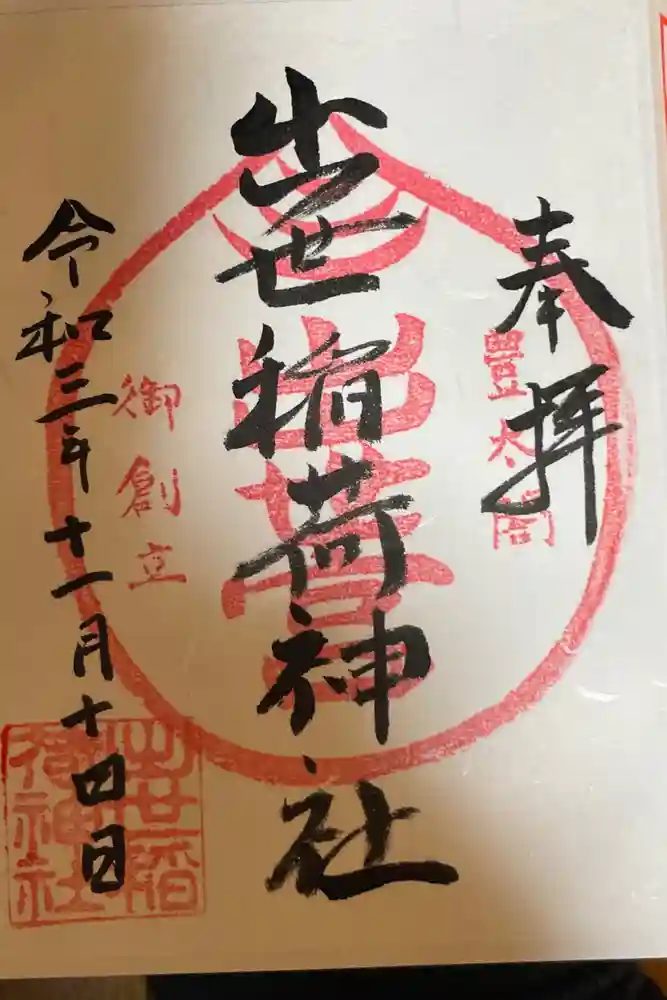 奉拝
豊太閤
出世稲荷神社
御創立
令和三年十一月十四日
出世稲荷神社